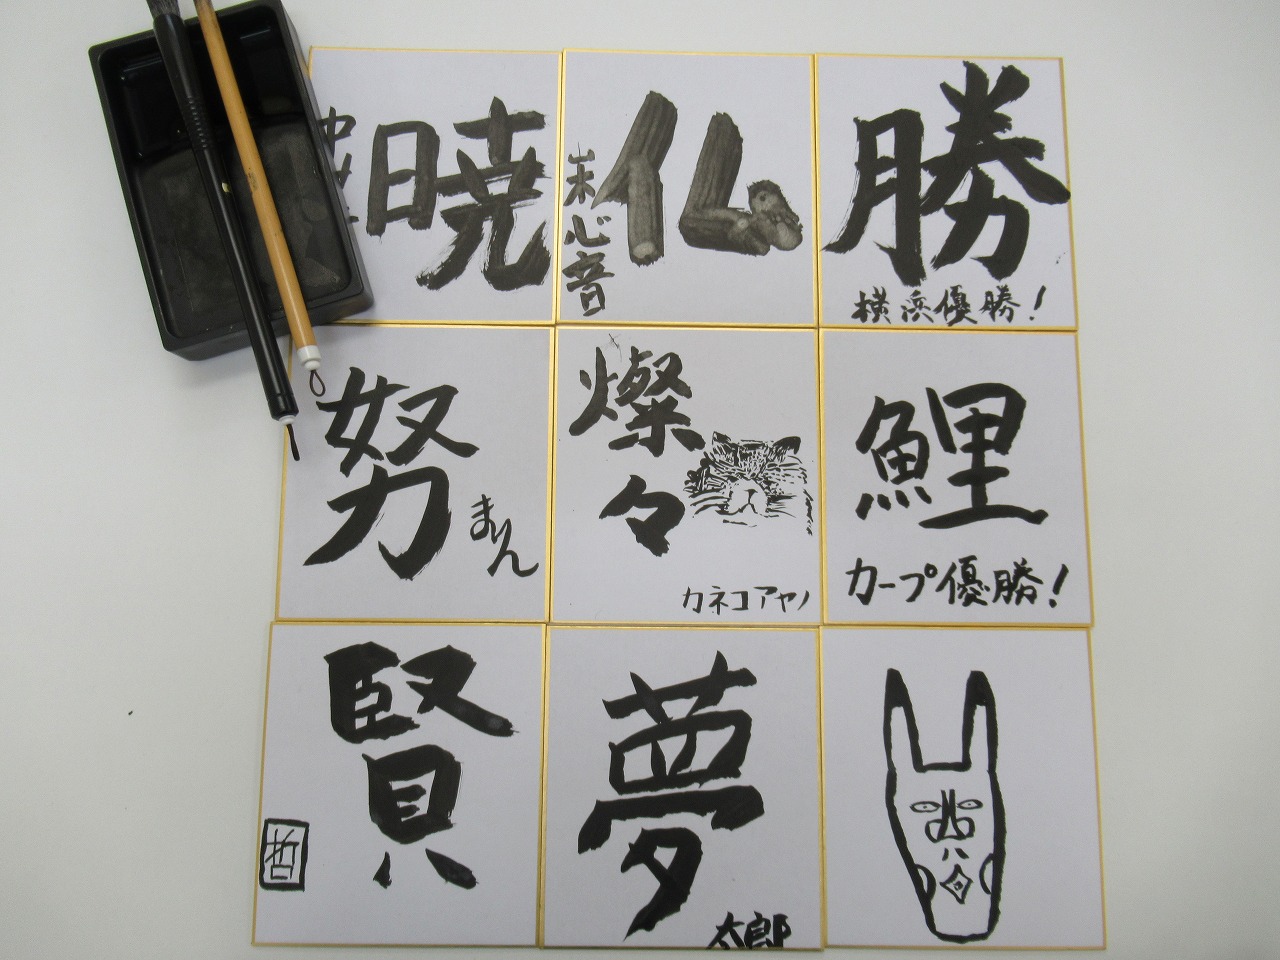 暁
仏
末心音
勝
横浜優勝!
努
まりん
燦々
カネコアヤノ
鯉
カープ優勝!
賢
哲
夢
太郎